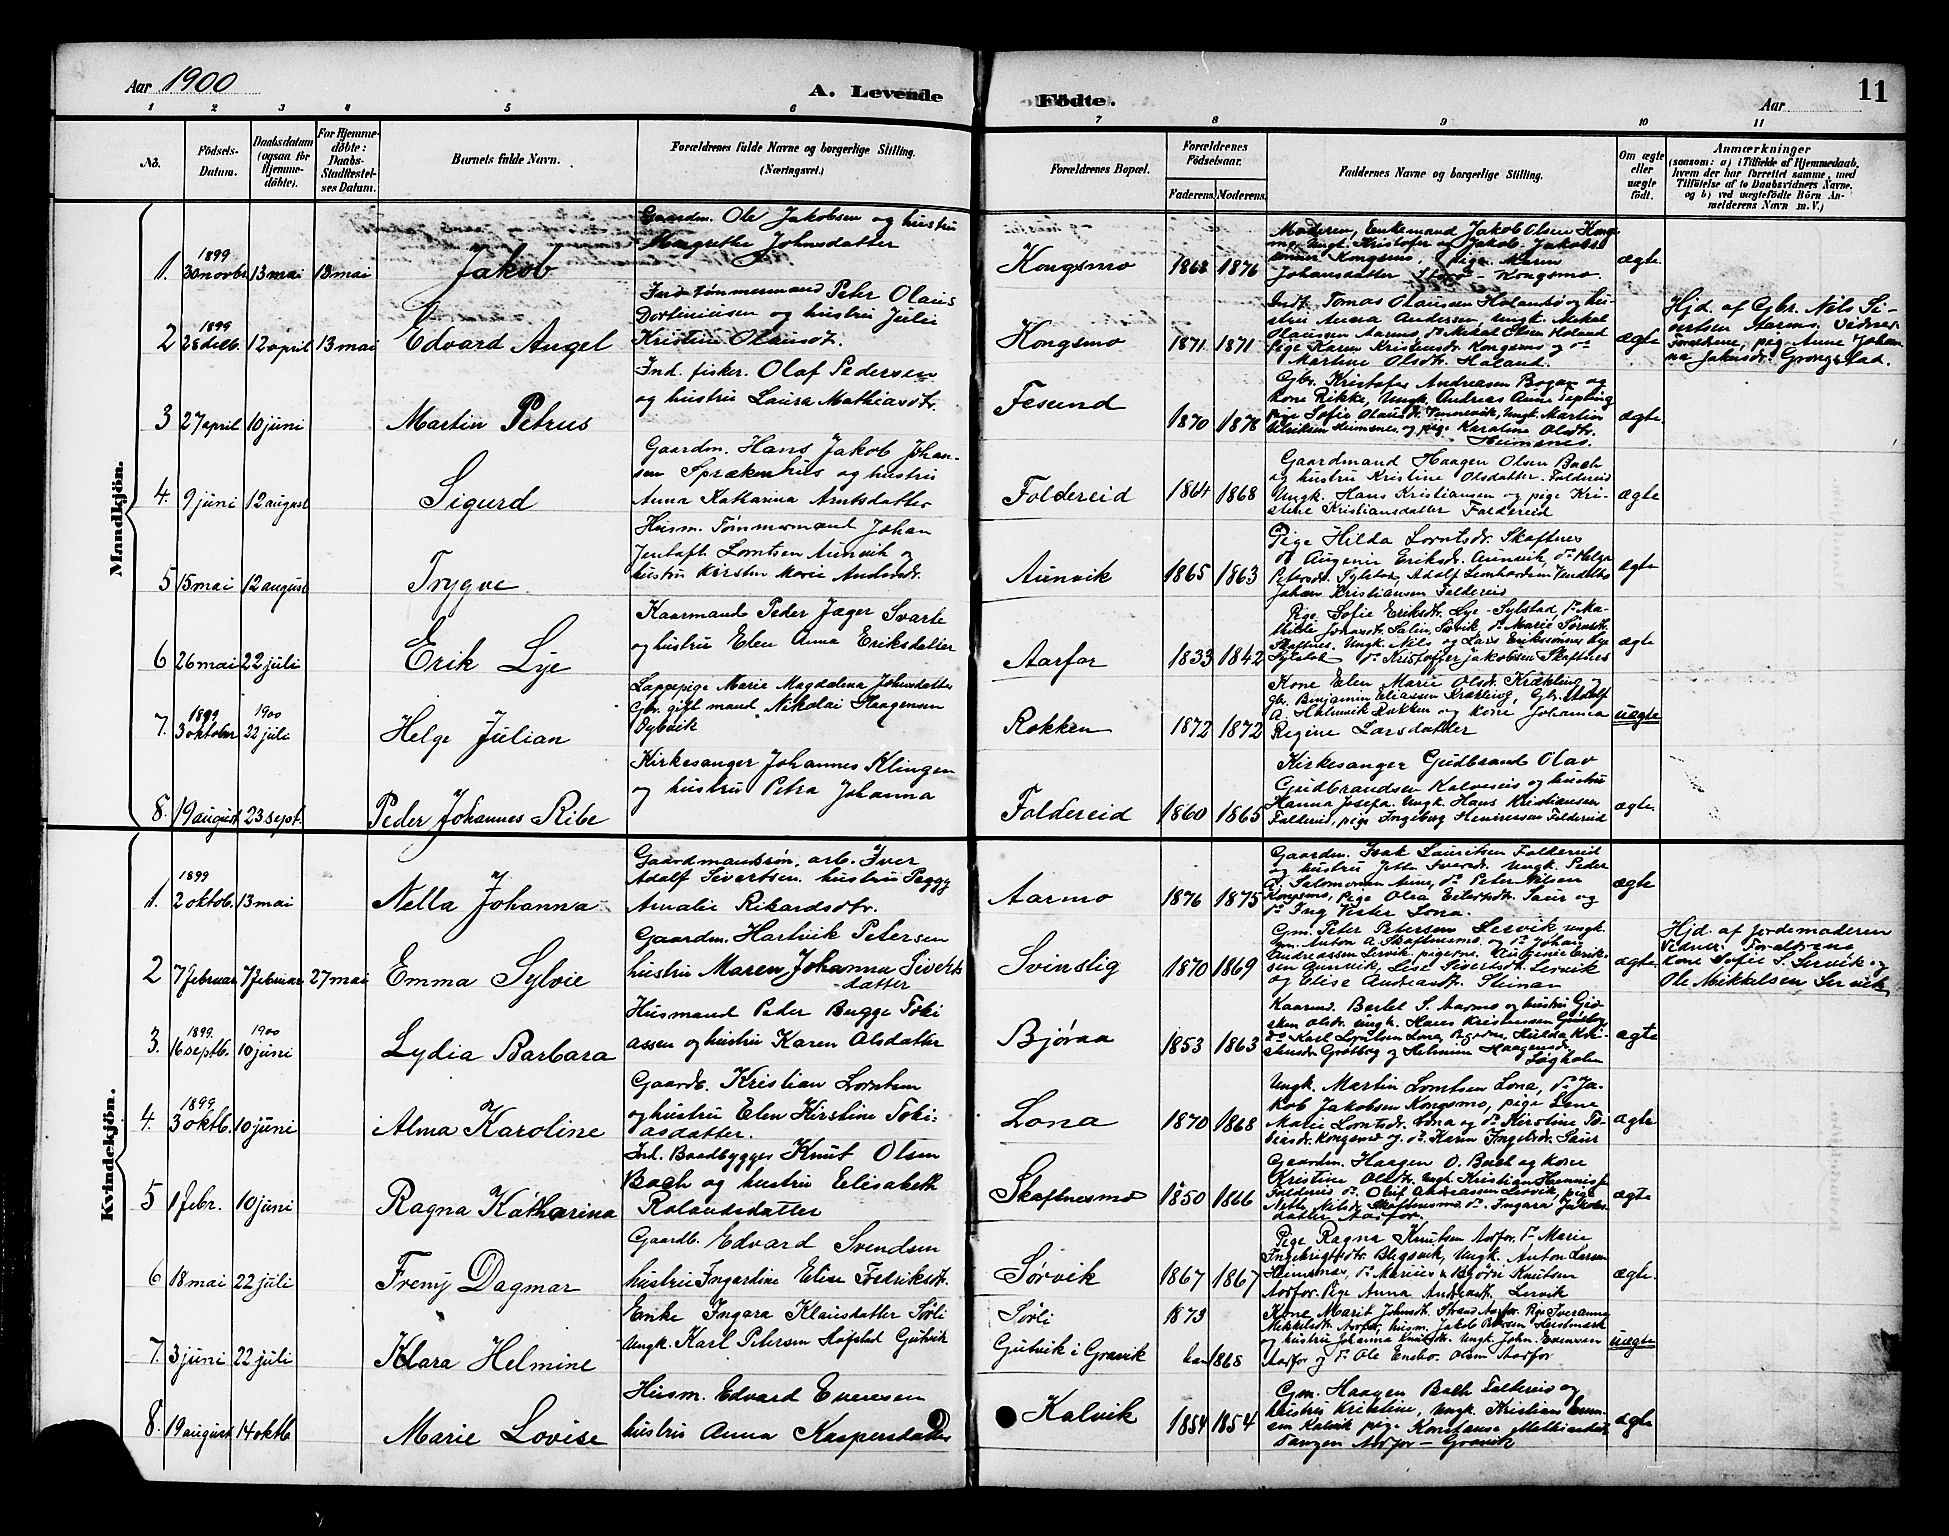 Aar 1900
A. Levende
Födte.
Aar
11
1 2 3 4 5 6 7 8 9 10 11
No.
Födsels-
Datum.
Daabsdatum
(ogsaa for
Hjemme-
döbte).
For Hjemme-
döbte:
Daabs-
Stadfæstel-
ses Datum.
Barnets fulde Navn.
Forældrenes fulde Navne og borgerlige Stilling.
(Næringsvei.)
Forældrenes Bopæl.
Forældrenes
Födselsaar.
Faderens.
Moderens.
Faddernes Navne og borgerlige Stilling.
Om ægte
eller
uægte
födt.
Anmærkninger
(saasom: a) i Tilfælde af Hjemmedaab,
hvem der har forrettet samme, med
Tilföielse af to Daabsvidners Navne,
og b) ved uægtefödte Börn An-
melderens Navn m. V.)
Mandkjön.
1.
1899
30 novbr.
13 mai
13 mai
Jakob
Gaardm. Ole Jakobsen og hustru
Margrethe Johnsdatter
Kongsmo
1868
1876
Moderen, Enkemand Jakob Olsen Kongs-
mo, Ungk. Kristofer og Jakob Jakobs-
sønner Kongsmo, pige Maren
Johansdatter - Kongsmo.
ægte
2
1899
28 decb.
12 april
13 mai
Edvard Angel
Ind. tømmermand Peter Olaus
Dortiniusen og hustru Julie
Kristine Olausdt.
Kongsmo
1871
1871
Indt. Tomas Olausen Holandsö og hu-
stru Anna Andersen, Ungk. Mikal
Olausen Aarmo, do Mikal Olsen Holand
pige Karen Kristensdt. Kongsmo og do
Martine Olsdtr. Haland.
ægte
Hjd. af Gbr. Nils Si-
vertsen Aarmo. Vidner
Forældrene, pige Anne Johan-
na Jakobsdt. Grongstad.
3
27 april
10 juni
Martin Petrus
Ind. fisker. Olaf Pedersen
og hustru Laura Mathiasdtr.
Fesund
1870
1878
Gbr. Kristofer Andreasen Bogen og
kone Rikke, Ungk. Andreas
pige Sofie Olausdt. Tennevik, Ungk. Martin
Ulriksen Heimsnes og pige Karoline Olsdt.
Heimsnes.
ægte.
4.
9 juni
12 august
Sigurd
Gaardm. Hans Jakob Johan-
sen Sprækenhus og hustru
Anna Katharina Arntsdatter
Foldereid
1864
1868
Gaardmand Haagen Olsen Bach
og hustru Kristine Olsdatter. Foldereid
Ungk. Hans Kristiansen og pige Kri-
stine Kristiansdatter Foldereid
ægte
5
15 mai
12 august
Trygve.
Husm. Tømmermand Johan
Jentoft Lorntsen Aunvik og
hustru Kirsten Marie Andersdt.
Aunvik
1865
1863
Pige Hilda Lorntsdt. Skaftnes
do Augenie Eriksdt. Aunvik, do Helga
Petersdt. Sylstad, Adolf Leonhardsen
Johan Kristiansen Foldereid
ægte
6
26 mai
22 juli
Erik Lye
Kaarmand Peder Jæger Svarte
og hustru Elen Anna Eriksdatter
Aarfor
1833
1842
Pige. Sofie Eriksdt. Lye - Sylstad, do Ma-
thilde Johansdt. Salin, Sørvik, do Marie
Skaftnes. Ungk. Nils og Lars Erikssønner Lye
Sylstad do Kristoffer Jakobsen Skaftnes
ægte
7.
1899
3 oktober
1900
22 juli
Helge Julian
Lappepige Marie Magdalena Johnsdatter
Gbr. gift mand Nikolai Haagensen
Dybvik
Rokken
1872
1872
Kone Elen Marie Olsdt. Krækling og
Gbr. Benjamin Eliassen Krækling, Gbr. Adolf
A. Halmvik Rokken og kone Johanna
Regine Larsdatter
uægte
8.
19 august
23 sept.
Peder Johannes Ribe
Kirkesanger Johannes Klingen
og hustru Petra Johanna
Foldereid
1860
1865
Kirkesanger Gudbrand Olav
Gudbrandsen Kalveseis og hustru
Hanna Josefa. Ungk. Hans Kristiansen
Foldereid, pige Ingeborg Henriksen Foldereid
ægte.
Kvindekjön.
1.
1899
2 oktob.
13 mai
Nella Johanna
Gaardmandssøn. arb. Iver
Adolf Sivertsen, hustru Peggy
Amalie Rikardsdtr.
Aarmo
1876
1875
Gaardm. Isak Lauritsen Foldereid
og hustru Jette Iversdt. Ungk. Peder
A. Salomonsen Aune, do Peter Nilsen
Kongsmo, pige Olea Eilertsdt. Saur og
do Lona.
ægte
2
7 februar
7 februar
27 mai
Emma Sylvie
Gaardm. Hartvik Petersen
hustru Maren Johanna Siverts-
datter
Svinslig
1870
1869
Gm. Peter Petersen Lervik Ungk.
Gm. Anton A. Skaftnesmo, og do Johan
Andreassen Lervik, pigerne Eugenie Erik-
sen Aunvik, Lise Sivertsdt. Lervik
og Elise Andreasdt. Steinan
ægte
Hjd. af Jordemoderen
Vidner: Forældrene
Kone Sofie S. Lervik og
Ole Mikkelsen Lervik,
3.
1899
16 septb.
1900
10 juni
Lydia Barbara
Husmand Peder Bugge Tobi-
assen og hustru Karen Olsdatter
Bjøraa
1853
1863
Kaarmd. Bertel S. Aarmo og hustru Gid-
sken Olsdt. Ungk. Hans Kristensen
do Karl Lorntsen Lona, Pigerne, Hilda Kri-
stensdt. Grøtberg og Helmine Haagensdt.
Løgholm
ægte
4.
1899
3 oktb.
10 juni
Alma Karoline
Gaardb. Kristian Lorntsen
og hustru Elen Kirstine Tobi-
asdatter.
Lona
1870
1868
Ungk. Martin Lorntsen Lona, do Ja-
kob Jakobsen Kongsmo, pige Lene
Marie Lorntsdt. Lona og do Kirstine To-
biasdt. Kongsmo og do Karen Ingebrdt. Saur
ægte
5
1 febr.
10 juni
Ragna Katharina
Ind. Baadbygger Knut Olsen
Bach og hustru Elisabeth
Rolandsdatter
Skaftnesmo
1850
1866
Gaardm. Haagen O. Bach og kone
Kristine Olsdt. Ungk. Kristian
Foldereid do Oluf Andreassen Lervik, pige
Nilsdt. Skaftnesmo, do Ingara Jakobs-
datter Aarfor.
ægte
6
18 mai
22 juli
Freny Dagmar
Gaardb. Edvard Svendsen
hustru Ingardine Elise Fredriksdt.
Sørvik
1867
1867
Pige Ragna Knutsen Aarfor. do Marie
Ingebrigtsdtr. Blegsvik, Ungk. Anton Larsen
Heimsnes, do Marius Bjøru Knutsen
Aarfor. Pige Anna Andreasdt. Lervik
ægte.
7.
3 juni
22 juli
Klara Helmine
Enke Ingara Klausdatter Sørli
Ungk. Karl Petersen Hofstad Gutvik
Sørli
Gutvik i Gravik
1873
han 1868
Kone Marit Johnsdt. Strand Aarfor. Pige Iveranna
Mikkelsdt. Aarfor, husm. Jakob Petersen Leirdmark
og hustru Johanna Knutsdt. Ungk. John Evensen
Aarfor og do Ole Olsen Aarfor
uægte
8.
19 august
14 oktb
Marie Lovise
Husm. Edvard Evensen
hustru Anna Kaspersdatter
Kalvik
1854
1854
Gm. Haagen Bach Foldereid og
hustru Kristine, Ungk. Kristian Even-
sen Kalvik pige Konstanse Mathiasdt.
Tangen Aarfor - Gravik
ægte